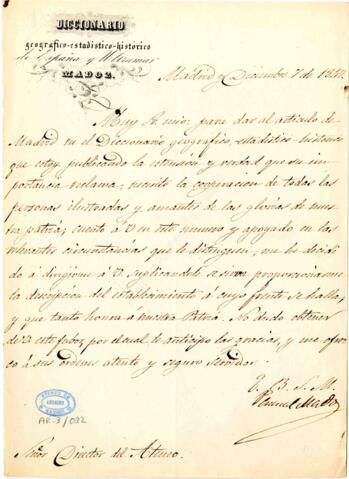 DICCIONARIO
geografico-estadistico-historico
de España y Ultramar
MADOZ.
Madrid y Diciembre 7 de
Muy Sr mio: para dar al artículo de
Madrid en el Diccionario geografico, estadistico-historico
que estoy publicando la estension y verdad que su im-
portancia reclama, necesito la cooperacion de todas las
personas ilustradas y amantes de las glorias de nues-
tra patria; cuento á V en este numero y apoyado en las
relevantes circunstancias que le distinguen, me he decidi-
do á dirigirme á V suplicandole se sirva proporcionarme
la descripcion del establecimiento á cuyo frente se halla,
y que tanto honra á nuestra Patria. No dudo obtener
de V este favor, por el cual le anticipo las gracias, y me ofrez-
co á sus ordenes atento y seguro servidor
Q. B. S. M.
Pascual Madoz
ATENEO DE
MADRID
AR-3/032
Señor Director del Ateneo.